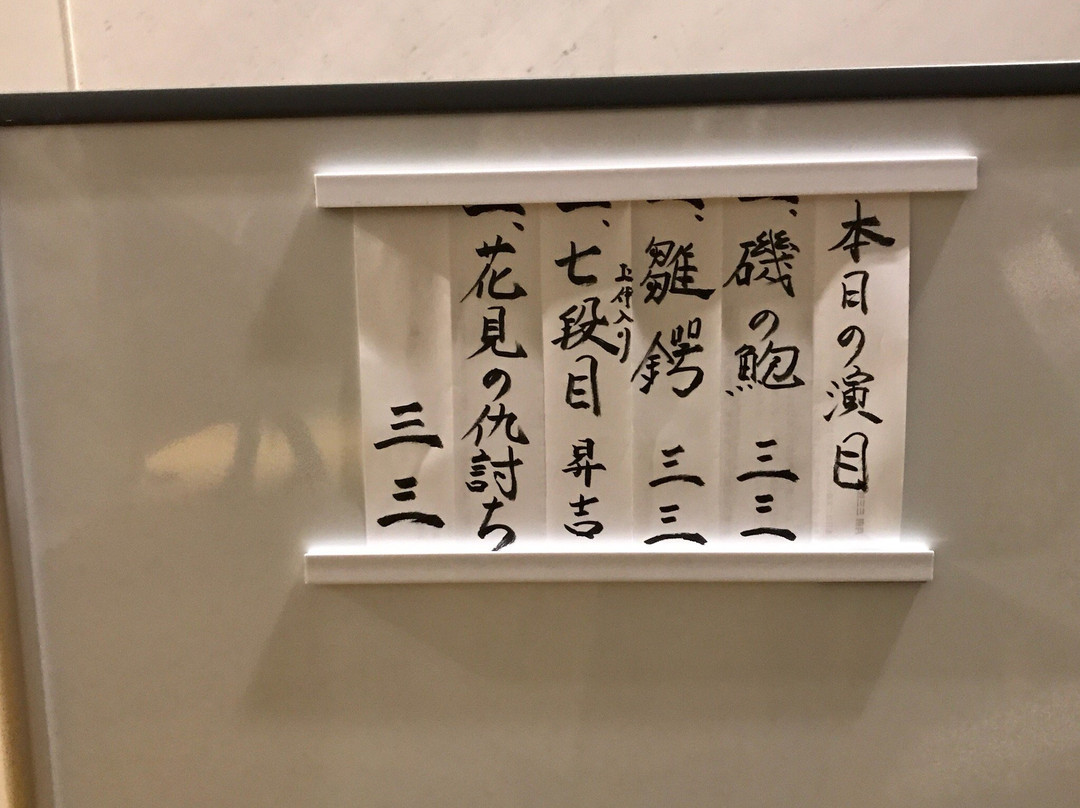 本日の演目
一、磯の鮑 三三
一、雛鍔 三三
お仲入り
一、七段目 昇吉
一、花見の仇討ち
三三